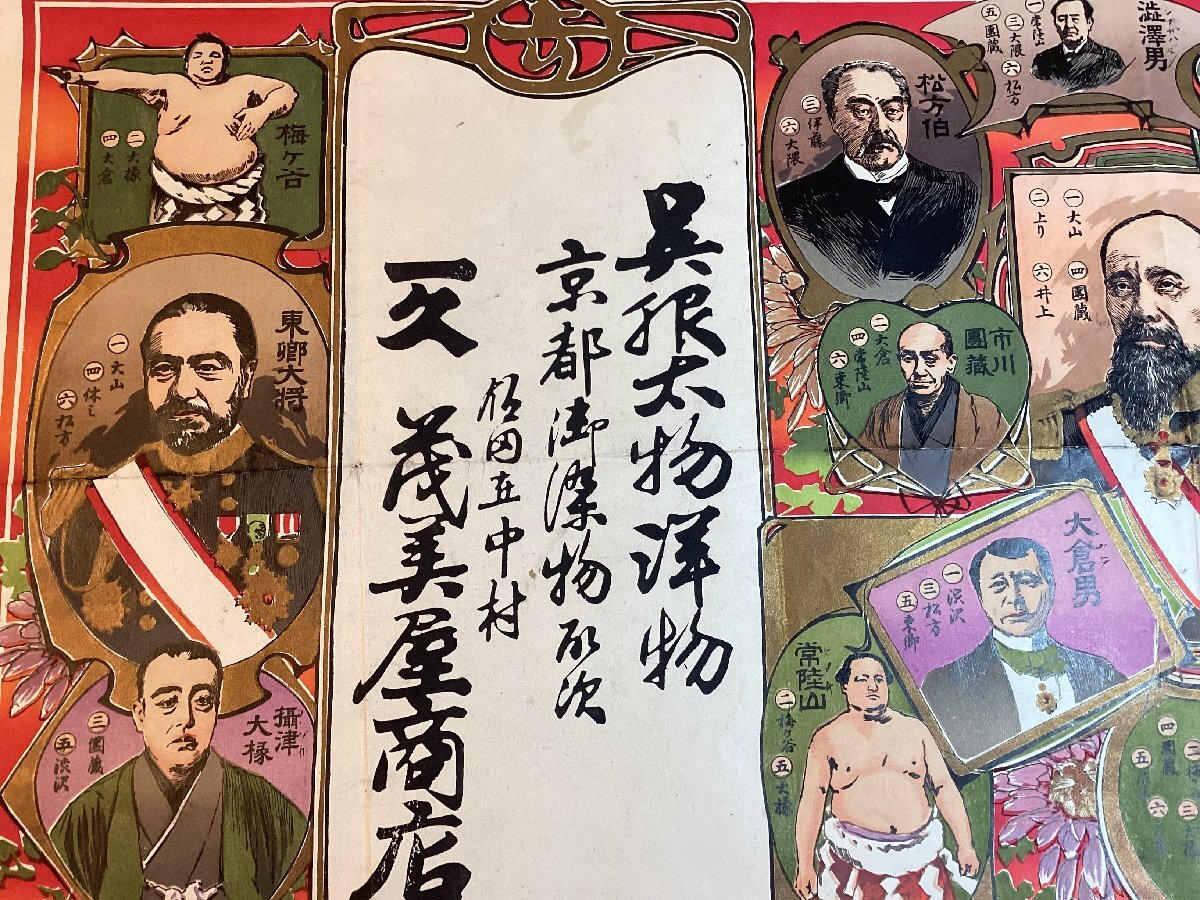 澁澤男
一 常陸山
三 大隈
五 團蔵
六 松方
松方伯
三 伊藤
六 大隈
一 大山
二 上り
四 團蔵
六 井上
市川團蔵
二 大倉
四 常陸山
六 東郷
大倉男
一 渋沢
三 松方
五 東郷
常陸山
二 梅ヶ谷
五 大椽
四 團蔵
呉服太物洋物
京都御染物取次
在中村
一久 茂美屋商店
梅ケ谷
二 大椽
四 大倉
東郷大将
一 大山
四 休ミ
六 松方
攝津大椽
三 團蔵
五 渋沢